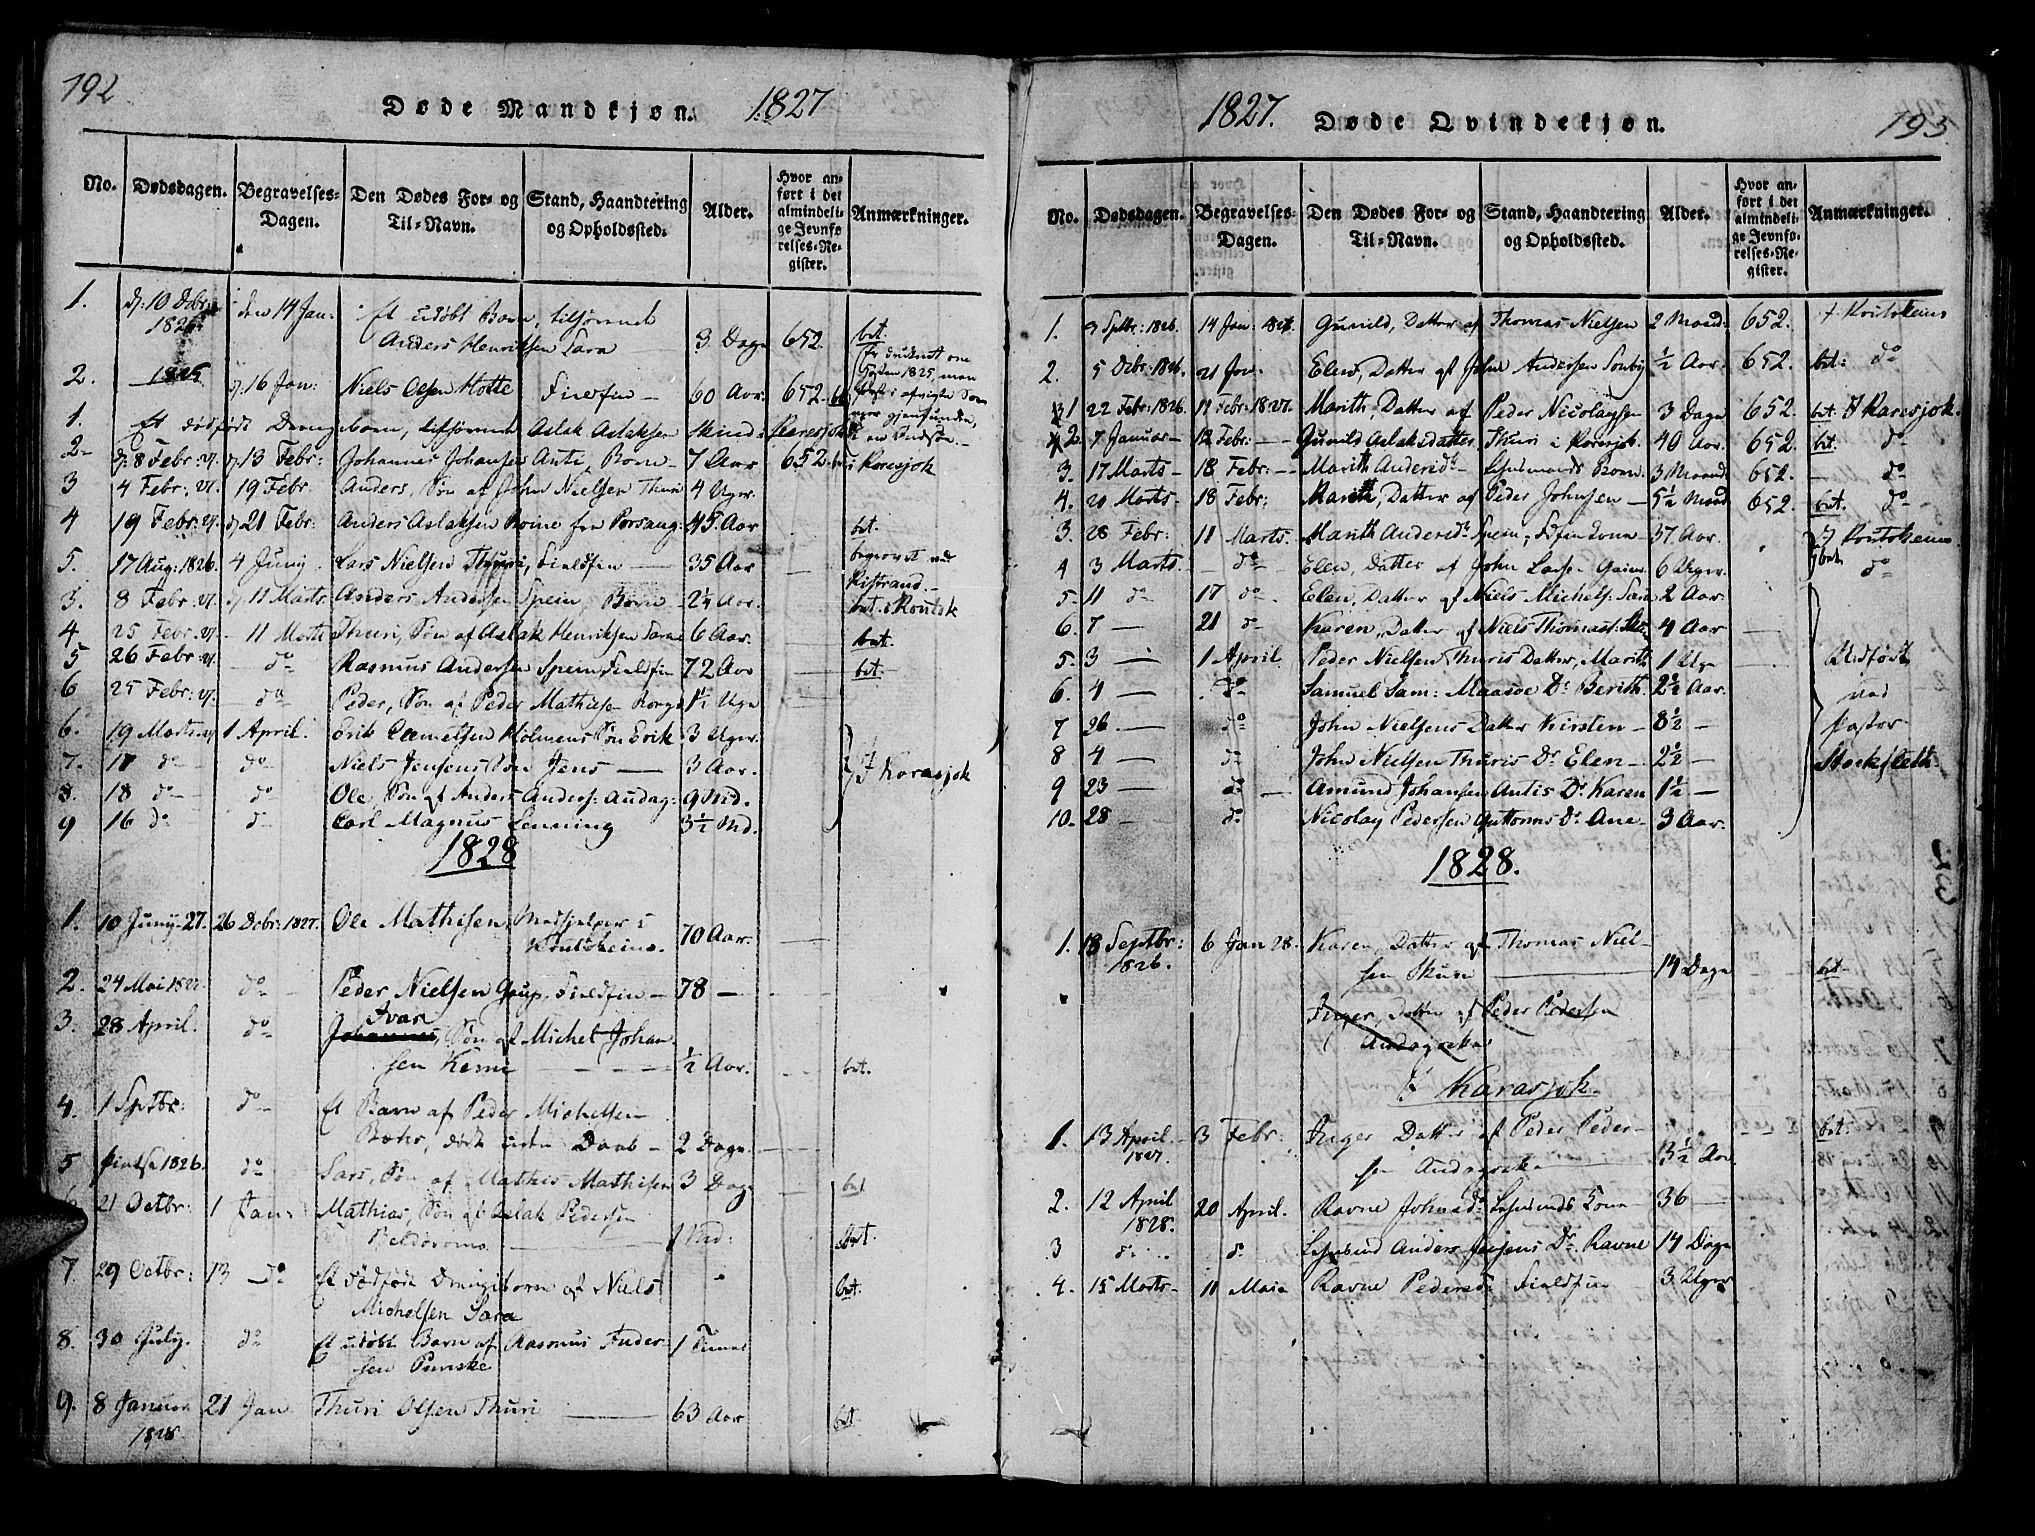 192
Døde Mandkjøn. 1827
No. Dødsdagen. Begravelses-Dagen. Den Dødes For- og Til-Navn. Stand, Haandtering og Opholdssted. Alder. Hvor anført i det almindelige Jevnførelses-Register. Anmærkninger.
1. d: 10 Dcbr: 1826 den 14 Jan: Et udøbt Barn, tilhørende
Anders Henriksen Sara 3 Dage 652. bet.
2. 1825 d: 16 Jan: Niels Olsen Hotte Fieldfin 60 Aar 652.
1. Et dødfødt Drengebarn, tilhørende Aslak Aslaksen
2 d: 8 Febr: 27. d: 13 Febr: Johannes Johansen Anti, Barn 7 Aar 652. i Karasjok
3 4 Febr: 27. 19 Febr. Anders, Søn af John Nielsen Thuri 4 Uger.
4 19 Febr: 27. d: 21 Febr: Anders Aslaksen fra Porsang: 45 Aar bet.
5. 17 Aug: 1826. 4 Juny Lars Nielsen Thuri, Fieldfin 35 Aar begravet ved Kistrand.
3. 8 Febr. 27. d: 11 Marts Anders Andersen Spein, Barn 2¼ Aar. bet.
4. 25 Febr. 27. 11 Marts Thuri, Søn af Aslak Henriksen Sara 6 Aar. bet.
5 26 Febr 27. do Rasmus Andersen Spein Fieldfin 72 Aar bet.
6 25 Febr: 27. do Peder, Søn af Peder Mathisen 1½ Uge
6. 19 Marts 27. 1 April. Erik Samuelsen Holmens Søn Erik 3 Uger.
7. 17 do do Niels Jensens Søn Jens 3 Aar. I Karasjok
8. 18 do do Ole, Søn af Anders Anders: Audag: 9 Md.
9 16 do do Carl Magnus Lenning 3½ Md.
1828
1. 10 Juny 27. 26 Dcbr: 1827. Ole Mathisen, Medhjelper i
Koutokeino. 70 Aar.
2. 24 Mai 1827 do Peder Nielsen Gaup, Fieldfin 78
3. 28 April. do Ivar
Johannes, Søn af Michel Johan-
sen Kemi ½ Aar. bet.
4. 1 Sptbr: do Et Barn af Peder Michelsen
Bæhr, død uden Daab 2 Dage
5 Pintse 1826. do Lars, Søn af Mathis Mathisen 3 Dage bet
6 21 Octbr: 1 Jan: Mathias, Søn af Aslak Pedersen
1 Md: bet.
7. 29 Octbr: 13 do Et dødfødt Drengebarn af Niels
Michelsen Sara bet.
8. 30 July. do Et udøbt Barn af Rasmus Ander-
sen Punske 1 Time
9. 8 Januar 1828 21 Jan Thuri Olsen Thuri 63 Aar bet
1827. Døde Qvindekjøn. 193
No. Dødsdagen. Begravelses-Dagen. Den Dødes For- og Til-Navn. Stand, Haandtering og Opholdssted. Alder. Hvor anført i det almindelige Jevnførelses-Register. Anmærkninger.
1. 9 Sptbr: 1826. 14 Jan: 1827. Gunild, Datter af Thomas Nielsen 2 Maand: 652. I Koutokeino
2. 5 Dcbr: 1826. 21 Jan: Elen, Datter af John Andersen ½ Aar. 652. bet: do
1 22 Febr: 1826. 11 Febr: 1827. Marith, Datter af Peder Nicolaysen 3 Dage 652. bet. I Karasjok.
2. 7 Januar 12 Febr: Gunild Aslaksdatter Thuri i Karasjok. 40 Aar. 652. bet do
3. 17 Marts 18 Febr: Marith Andersdr Lehnsmands Barn 3 Maand: 652. do
4. 20 Marts 18 Febr: Marith, Datter af Peder Johnsen 5½ Maand 652. bet. do
3. 28 Febr: 11 Marts. Marith Andersdr Spein, Fdfin Kone 37 Aar. I Koutokeino
4 3 Marts. do Elen, Datter af John Larse Gaino 6 Uger. bet. do
5. 11 do 17 do Elen, Datter af Niels Michels: Sara 2 Aar
6. 7 21 do Karen, Datter af Niels Thomass: 4 Aar
5. 3 1 April Peder Nielsen Thuris Datter, Marith 1 Uge Udført
6. 4 do Samuel Sam: Maasøe Dr Berith 2½ Aar. ved
7 26 do John Nielsens Datter Kirsten 8½ Pastor
8 4 do John Nielsen Thuris Dr Elen 2½ Stockfleth.
9 23 do Amund Johansen Antis Dr Karen 1½
10. 28 do Nicolay Pedersen Guttorms Dr Ane 3 Aar.
1828.
1. 18 Septbr: 1826. 6 Jan 28. Karen, Datter af Thomas Niel-
sen 14 Dage bet
Inger, Datter af Peder Pedersen
Audagoeka
I Karasjok.
1. 13 April 1827. 3 Febr: Inger Datter af Peder Peder-
sen Audagoeka 3½ Aar bet:
2. 12 April 1828. 20 April. Ravne Johnsdr Lehnsmds Kone 36
3 do do Lehnsmd Anders Jensens Dr Ravne 14 Dage
4. 15 Marts 11 Maie Ravne Pedersdr Fieldfin 3 Uger